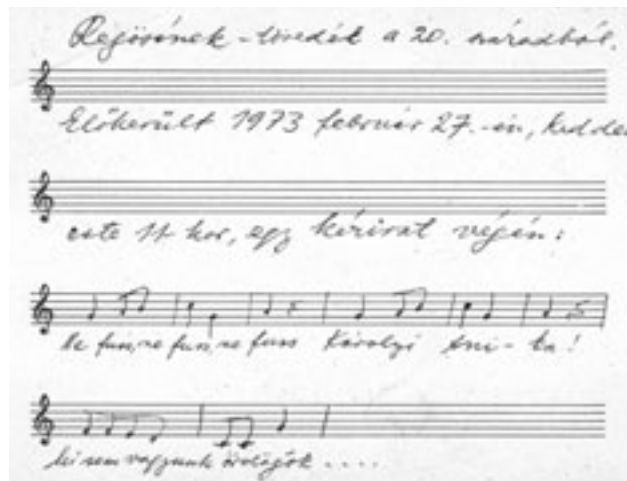 Regösének-töredék a 20. századból.
Előkerült 1973 február 27.-én, kedden
este 11 kor, egy kézirat végén:
Ne fuss, ne fuss, ne fuss Károlyi Ani-ta!
Mi sem vagyunk ördögök ....